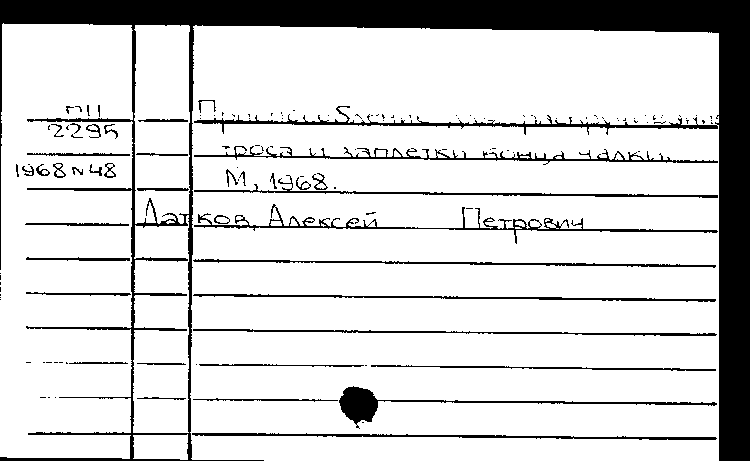 ПН
2295
1968 N 48
Приспособление для распрутирования
троса и заплетки конца чалки.
М, 1968.
Латков, Алексей Петрович